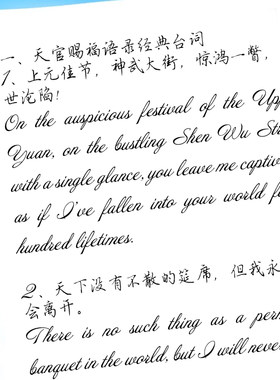 一、天官赐福语录经典台词
1、上元佳节，神武大街，惊鸿一瞥，
世沦陷！
On the auspicious festival of the Upp
Yuan, on the bustling Shen Wu Str
with a single glance, you leave me captiv
as if I've fallen into your world fo
hundred lifetimes.
2、天下没有不散的筵席，但我永
会离开。
There is no such thing as a perm
banquet in the world, but I will never